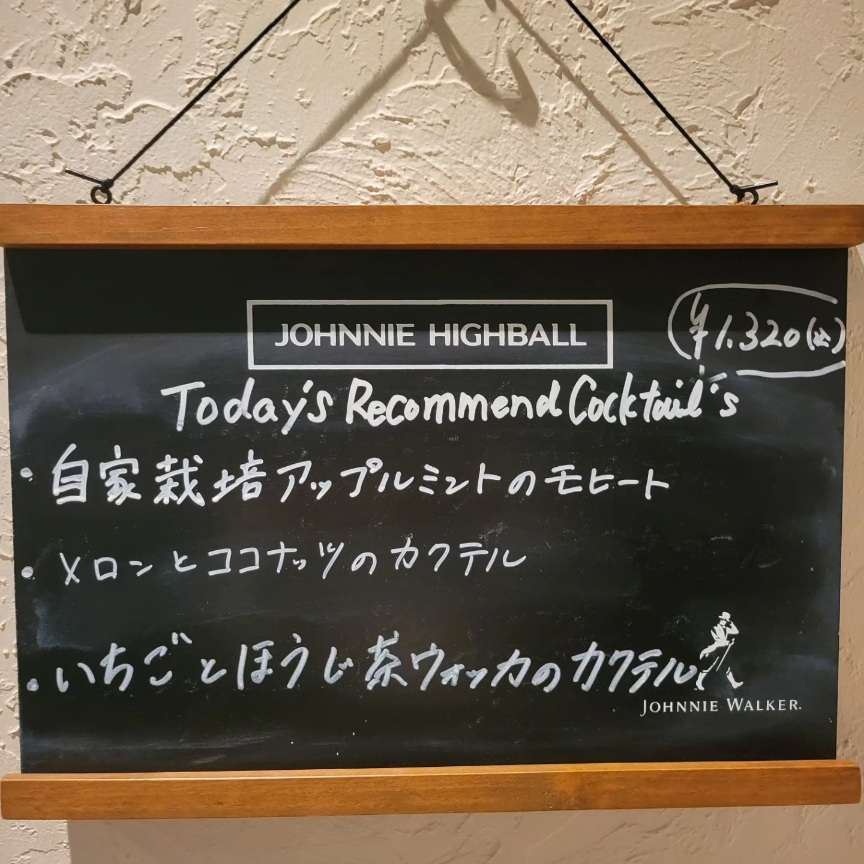 JOHNNIE HIGHBALL
¥1.320(込)
Today's Recommend Cocktail's
・自家栽培アップルミントのモヒート
・メロンとココナッツのカクテル
・いちごとほうじ茶ウォッカのカクテル
JOHNNIE WALKER.